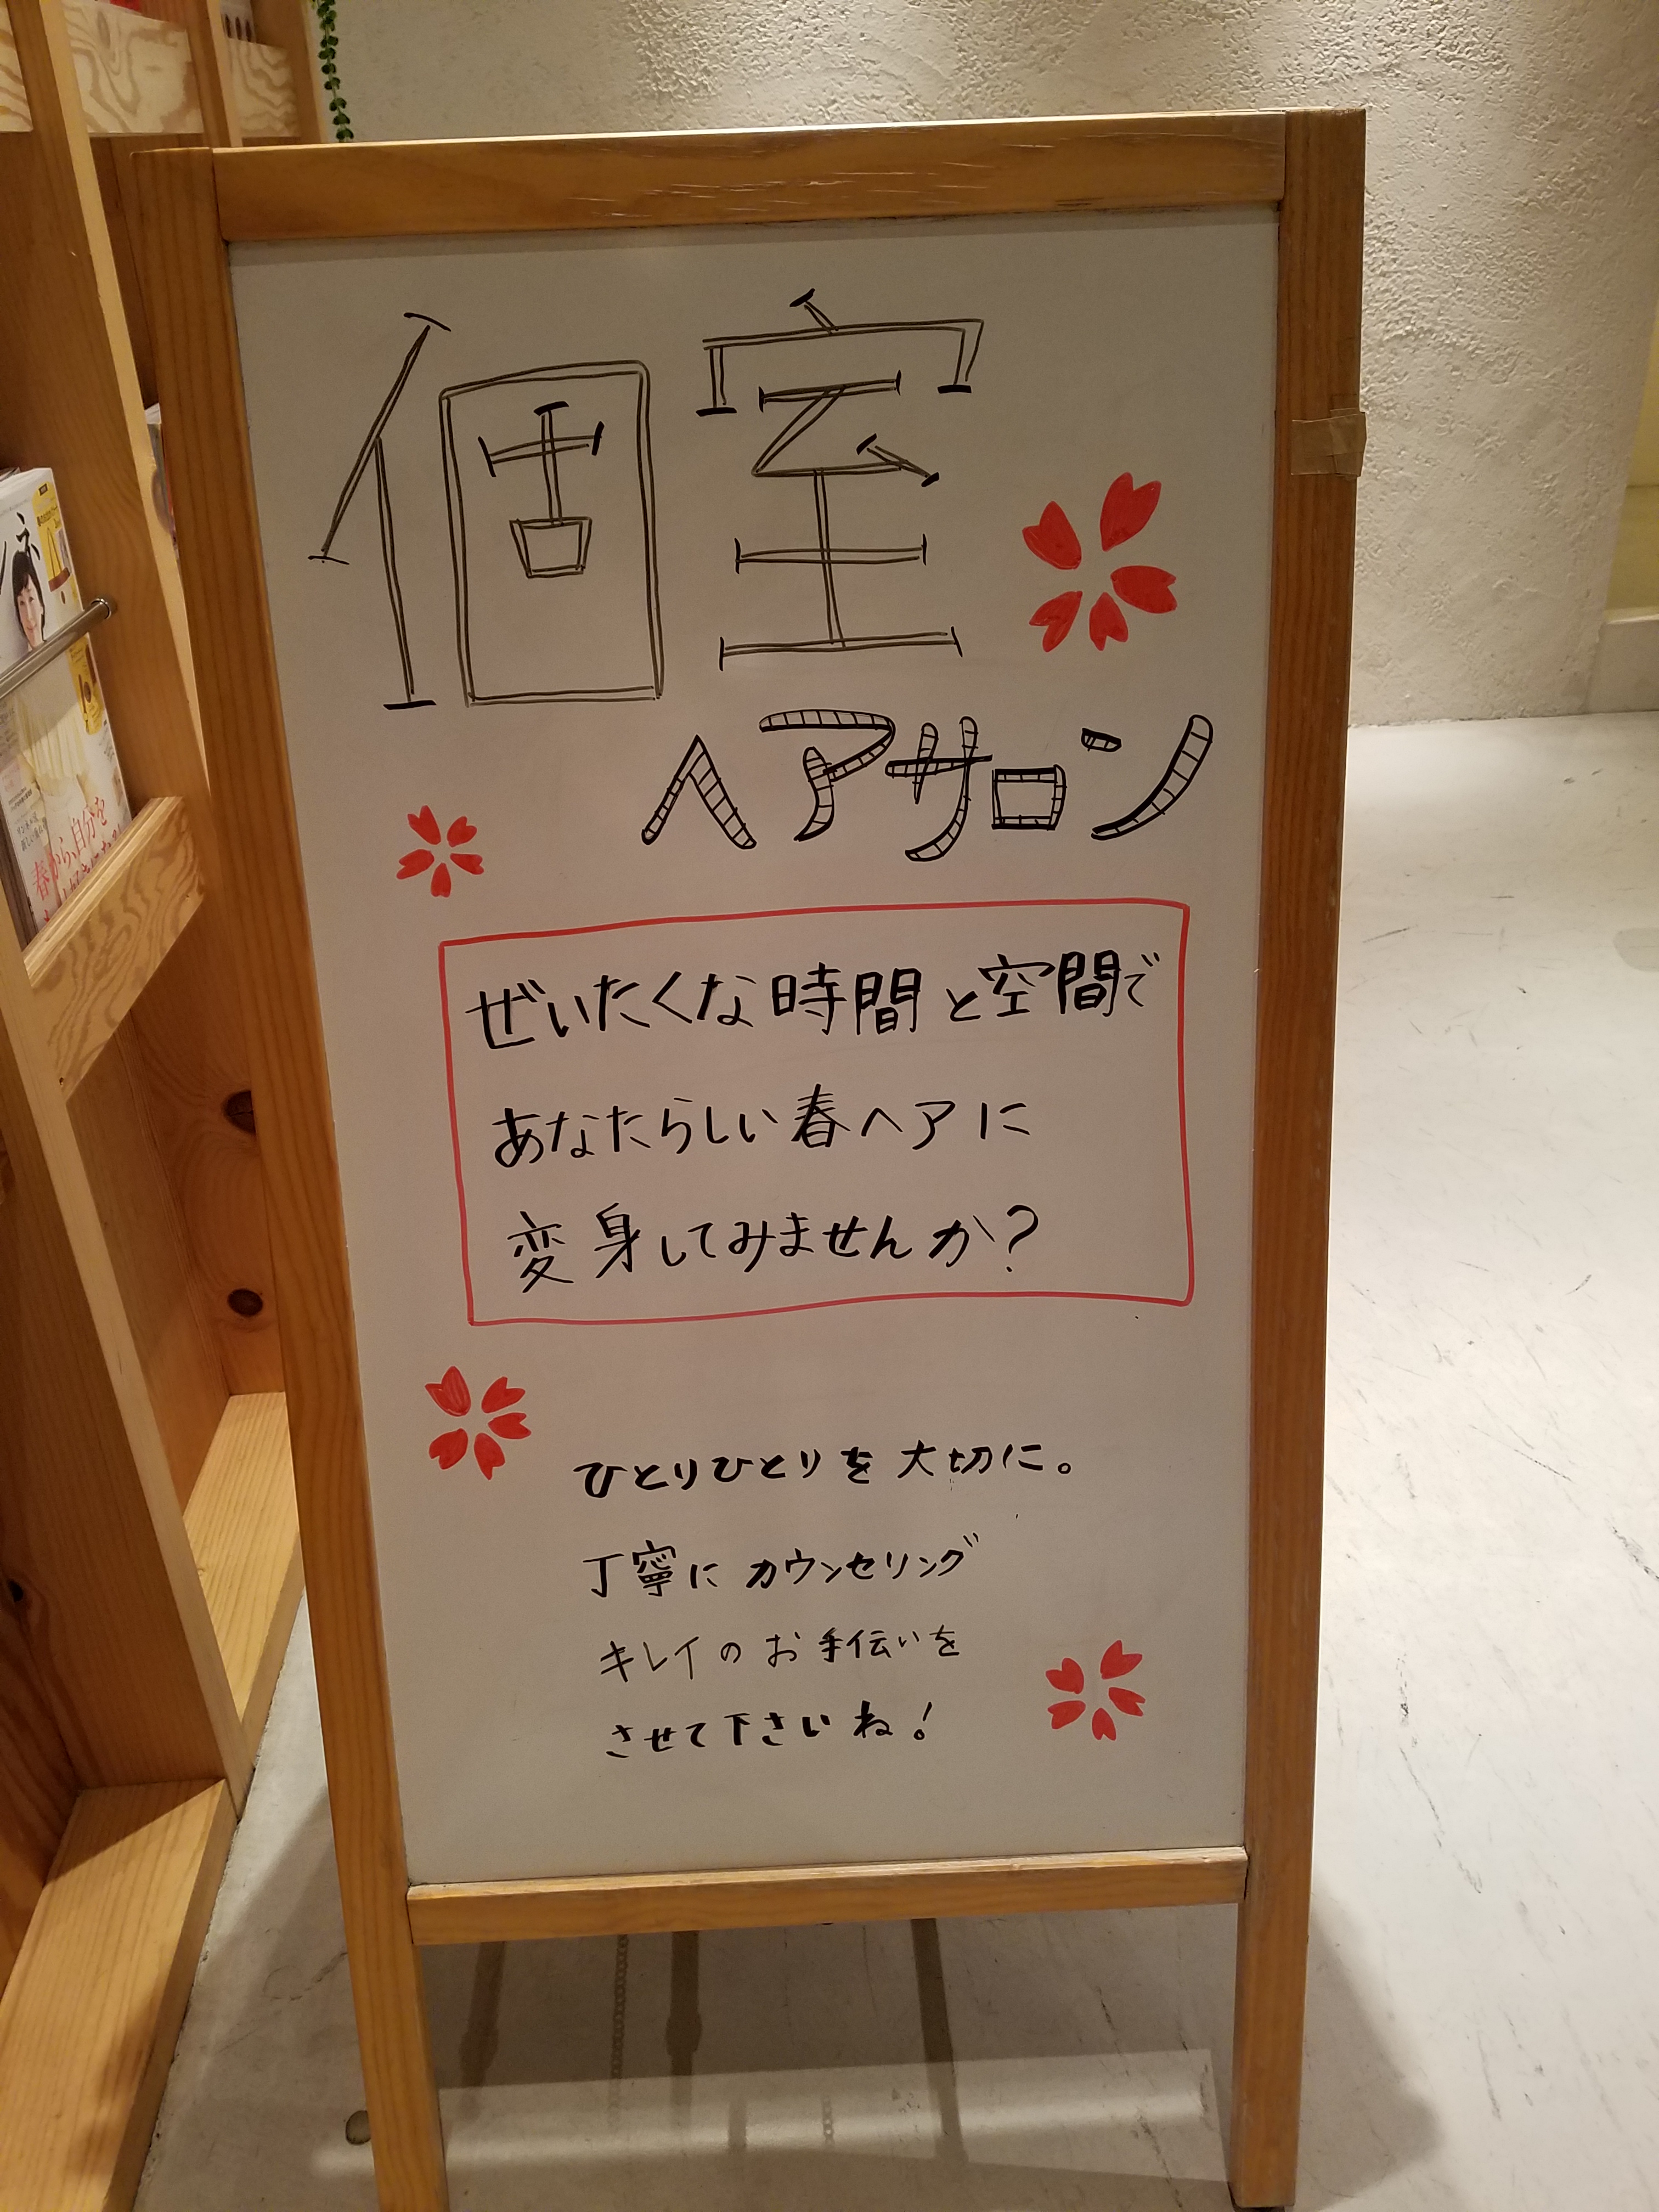 個室
ヘアサロン
ぜいたくな時間と空間で
あなたらしい春ヘアに
変身してみませんか?
ひとりひとりを大切に。
丁寧にカウンセリング
キレイのお手伝いを
させて下さいね!
春から、自分を